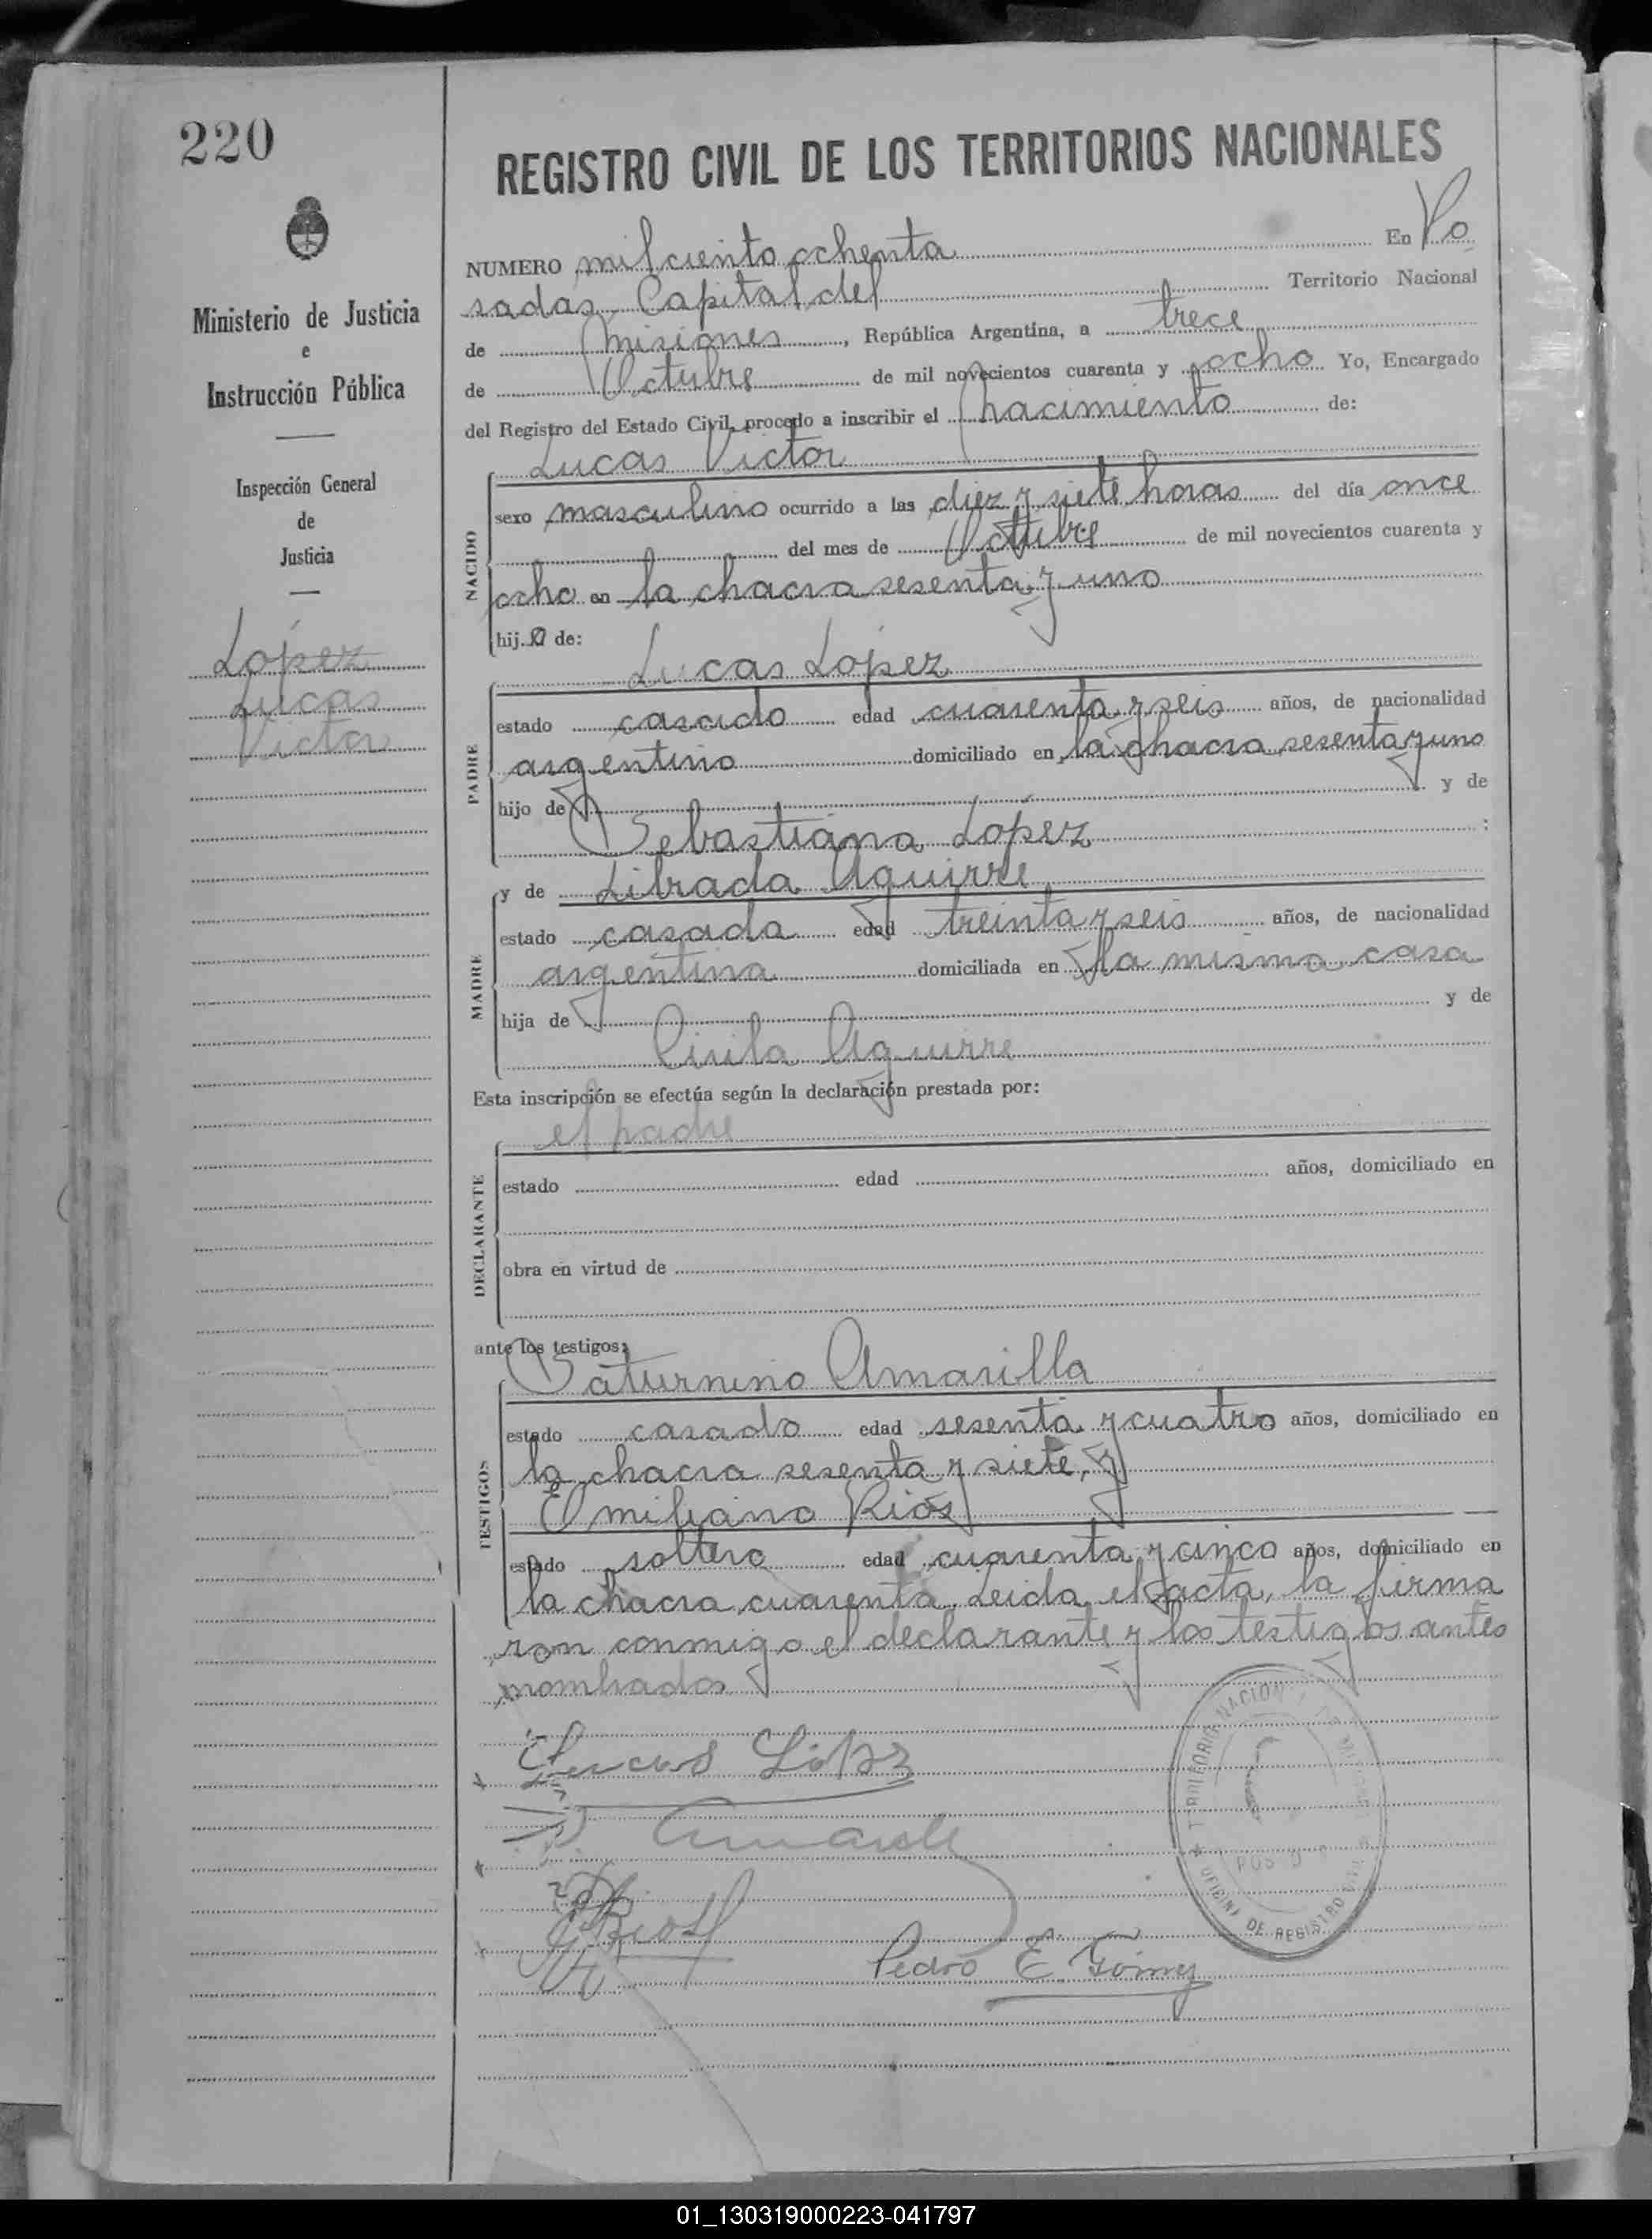 220
REGISTRO CIVIL DE LOS TERRITORIOS NACIONALES
Ministerio de Justicia
e
Instrucción Pública
Inspección General
de
Justicia
López
Lucas
Victor
NUMERO mil ciento ochenta En Po
sadas Capital del Territorio Nacional
de Misiones, República Argentina, a trece
de Octubre de mil novecientos cuarenta y ocho Yo, Encargado
del Registro del Estado Civil, procedo a inscribir el nacimiento de:
Lucas Victor
NACIDO
sexo masculino ocurrido a las diez y siete horas del día once
del mes de Octubre de mil novecientos cuarenta y
ocho en la chacra sesenta y uno
hijo de:
Lucas López
PADRE
estado casado edad cuarenta y seis años, de nacionalidad
argentino domiciliado en la chacra sesenta y uno
hijo de y de
Sebastiana López :
y de Librada Aguirre
MADRE
estado casada edad treinta y seis años, de nacionalidad
argentina domiciliada en la misma casa
hija de y de
Aguirre
Esta inscripción se efectúa según la declaración prestada por:
el padre
DECLARANTE
estado edad años, domiciliado en
obra en virtud de
ante los testigos:
Saturnino Amarilla
TESTIGOS
estado casado edad sesenta y cuatro años, domiciliado en
la chacra sesenta y siete, y
Emiliano Rios
estado soltero edad cuarenta y cinco años, domiciliado en
la chacra cuarenta. Leida el acta, la firma
ron conmigo el declarante y los testigos antes
nombrados
Lucas López
Rios
Pedro E. Gómez
TERRITORIO NACIONAL DE MISIONES
OFICINA DE REGISTRO CIVIL
01_130319000223-041797